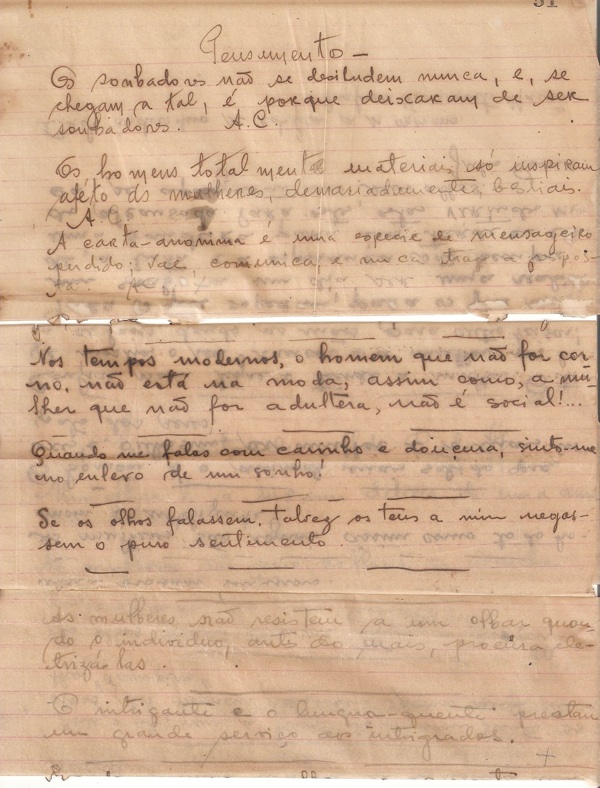 51
Pensamento –
Os sonhadores não se desiludem nunca, e, se
chegam a tal, é porque deixaram de ser
sonhadores. A.C.
Os homens totalmente materiais, só inspiram
aféto ás mulheres, demasiadamente bestiais.
A.C.
A carta-anonima é uma especie de mensageiro
perdido; vae, comunica e nunca
Nos tempos modernos, o homem que não for cor-
no, não está na moda, assim como, a mu-
lher que não for adultera, não é social!...
Quando me falas com carinho e douçura, sinto-me
no enlevo de um sonho!
Se os olhos falassem, talvez os teus a mim negas-
sem o puro sentimento.
As mulheres não resistem a um olhar quan-
do o individuo, antes do mais, procura ele-
trizá-las.
O intrigante e o lingua-quente prestam
um grande serviço aos intrigados.